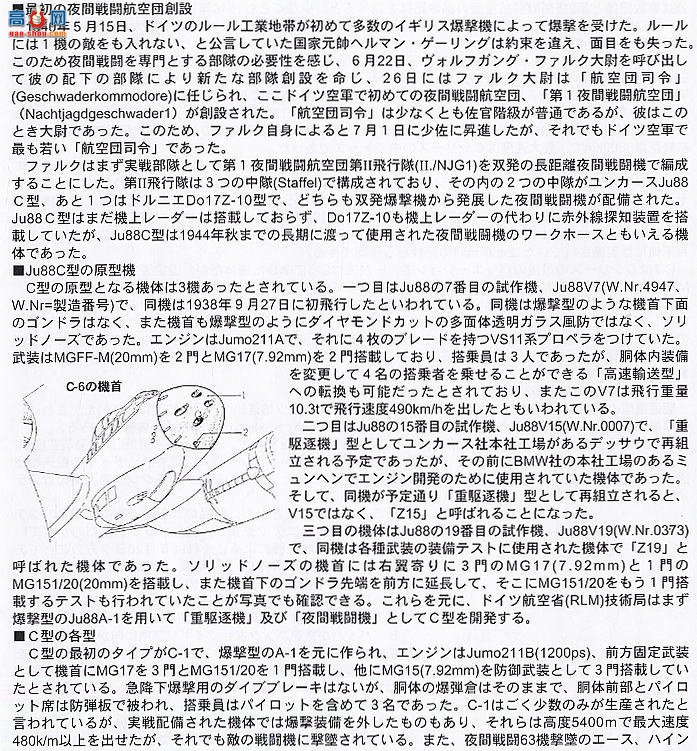 ■最初の夜間戦闘航空団創設
年５月15日、ドイツのルール工業地帯が初めて多数のイギリス爆撃機によって爆撃を受けた。ルール
には１機の敵をも入れない、と公言していた国家元帥ヘルマン・ゲーリングは約束を違え、面目をも失った。
このため夜間戦闘を専門とする部隊の必要性を感じ、６月22日、ヴォルフガング・ファルク大尉を呼び出し
て彼の配下の部隊により新たな部隊創設を命じ、26日にはファルク大尉は「航空団司令」
(Geschwaderkommodore)に任じられ、ここドイツ空軍で初めての夜間戦闘航空団、「第１夜間戦闘航空団」
（Nachtjagdgeschwader1）が創設された。「航空団司令」は少なくとも佐官階級が普通であるが、彼はこの
とき大尉であった。このため、ファルク自身によると７月１日に少佐に昇進したが、それでもドイツ空軍で
最も若い「航空団司令」であった。
ファルクはまず実戦部隊として第１夜間戦闘航空団第II飛行隊(II./NJG1)を双発の長距離夜間戦闘機で編成
することにした。第II飛行隊は３つの中隊(Staffel)で構成されており、その内の２つの中隊がユンカースJu88
Ｃ型、あと１つはドルニエDo17Z-10型で、どちらも双発爆撃機から発展した夜間戦闘機が配備された。
Ju88Ｃ型はまだ機上レーダーは搭載しておらず、Do17Z-10も機上レーダーの代わりに赤外線探知装置を搭
載していたが、Ju88C型は1944年秋までの長期に渡って使用された夜間戦闘機のワークホースともいえる機
体であった。
■Ju88C型の原型機
C型の原型となる機体は3機あったとされている。一つ目はJu88の7番目の試作機、Ju88V7(W.Nr.4947、
W.Nr=製造番号)で、同機は1938年９月27日に初飛行したといわれている。同機は爆撃型のような機首下面
のゴンドラはなく、また機首も爆撃型のようにダイヤモンドカットの多面体透明ガラス風防ではなく、ソリ
ッドノーズであった。エンジンはJumo211Aで、それに４枚のブレードを持つVS11系プロペラをつけていた。
武装はMGFF-M(20mm)を２門とMG17(7.92mm)を２門搭載しており、搭乗員は３人であったが、胴体内装備
を変更して４名の搭乗者を乗せることができる「高速輸送型」
への転換も可能だったとされており、またこのV7は飛行重量
10.3tで飛行速度490km/hを出したともいわれている。
C-6の機首
1
2
3
二つ目はJu88の15番目の試作機、Ju88V15(W.Nr.0007)で、「重
駆逐機」型としてユンカース社本社工場があるデッサウで再組
立される予定であったが、その前にBMW社の本社工場のあるミ
ュンヘンでエンジン開発のために使用されていた機体であった。
そして、同機が予定通り「重駆逐機」型として再組立されると、
V15ではなく、「Z15」と呼ばれることになった。
三つ目の機体はJu88の19番目の試作機、Ju88V19(W.Nr.0373)
で、同機は各種武装の装備テストに使用された機体で「Z19」と
呼ばれた機体であった。ソリッドノーズの機首には右翼寄りに３門のMG17(7.92mm)と１門の
MG151/20(20mm)を搭載し、また機首下のゴンドラ先端を前方に延長して、そこにMG151/20をもう１門搭
載するテストも行われていたことが写真でも確認できる。これらを元に、ドイツ航空省(RLM)技術局はまず
爆撃型のJu88A-1を用いて「重駆逐機」及び「夜間戦闘機」としてＣ型を開発する。
■Ｃ型の各型
Ｃ型の最初のタイプがC-1で、爆撃型のA-1を元に作られ、エンジンはJumo211B(1200ps)、前方固定武装
として機首にMG17を３門とMG151/20を１門搭載し、他にMG15(7.92mm)を防御武装として３門搭載してい
たとされている。急降下爆撃用のダイブブレーキはないが、胴体の爆弾倉はそのままで、胴体前部とパイロ
ット席は防弾板で被われ、搭乗員はパイロットを含めて３名であった。C-1はごく少数のみが生産されたと
言われているが、実戦配備された機体では爆撃装備を外したものもあり、それらは高度5400ｍで最大速度
480k/m以上を出せたが、それでも敵の戦闘機に撃墜されている。また、夜間戦闘63機撃墜のエース、ハイン